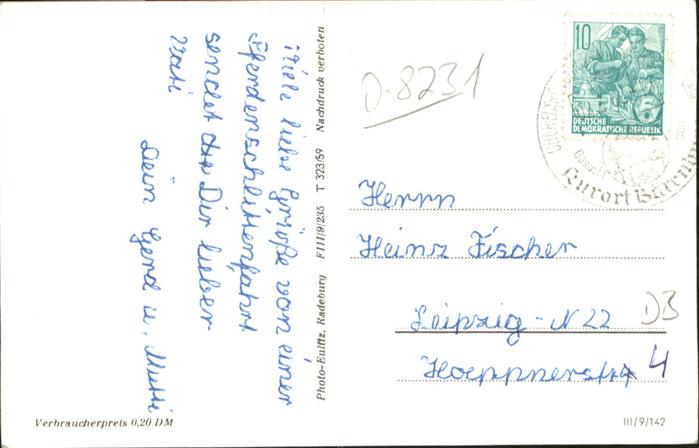 Viele liebe Grüße von einer
Pferdenschlittenfahrt
sendet Dir lieber
Vati
Dein Gerd u. Mutti
Photo-Eulitz, Radeburg F III/9/235 T 323/59 Nachdruck verboten
D-8231
10
DEUTSCHE
DEMOKRATISCHE REPUBLIK
Besucht
Kurort
Herrn
Heinz Fischer
Leipzig-N 22
D3
Hoeppnerstr 4
Verbraucherpreis 0,20 DM
III/9/142